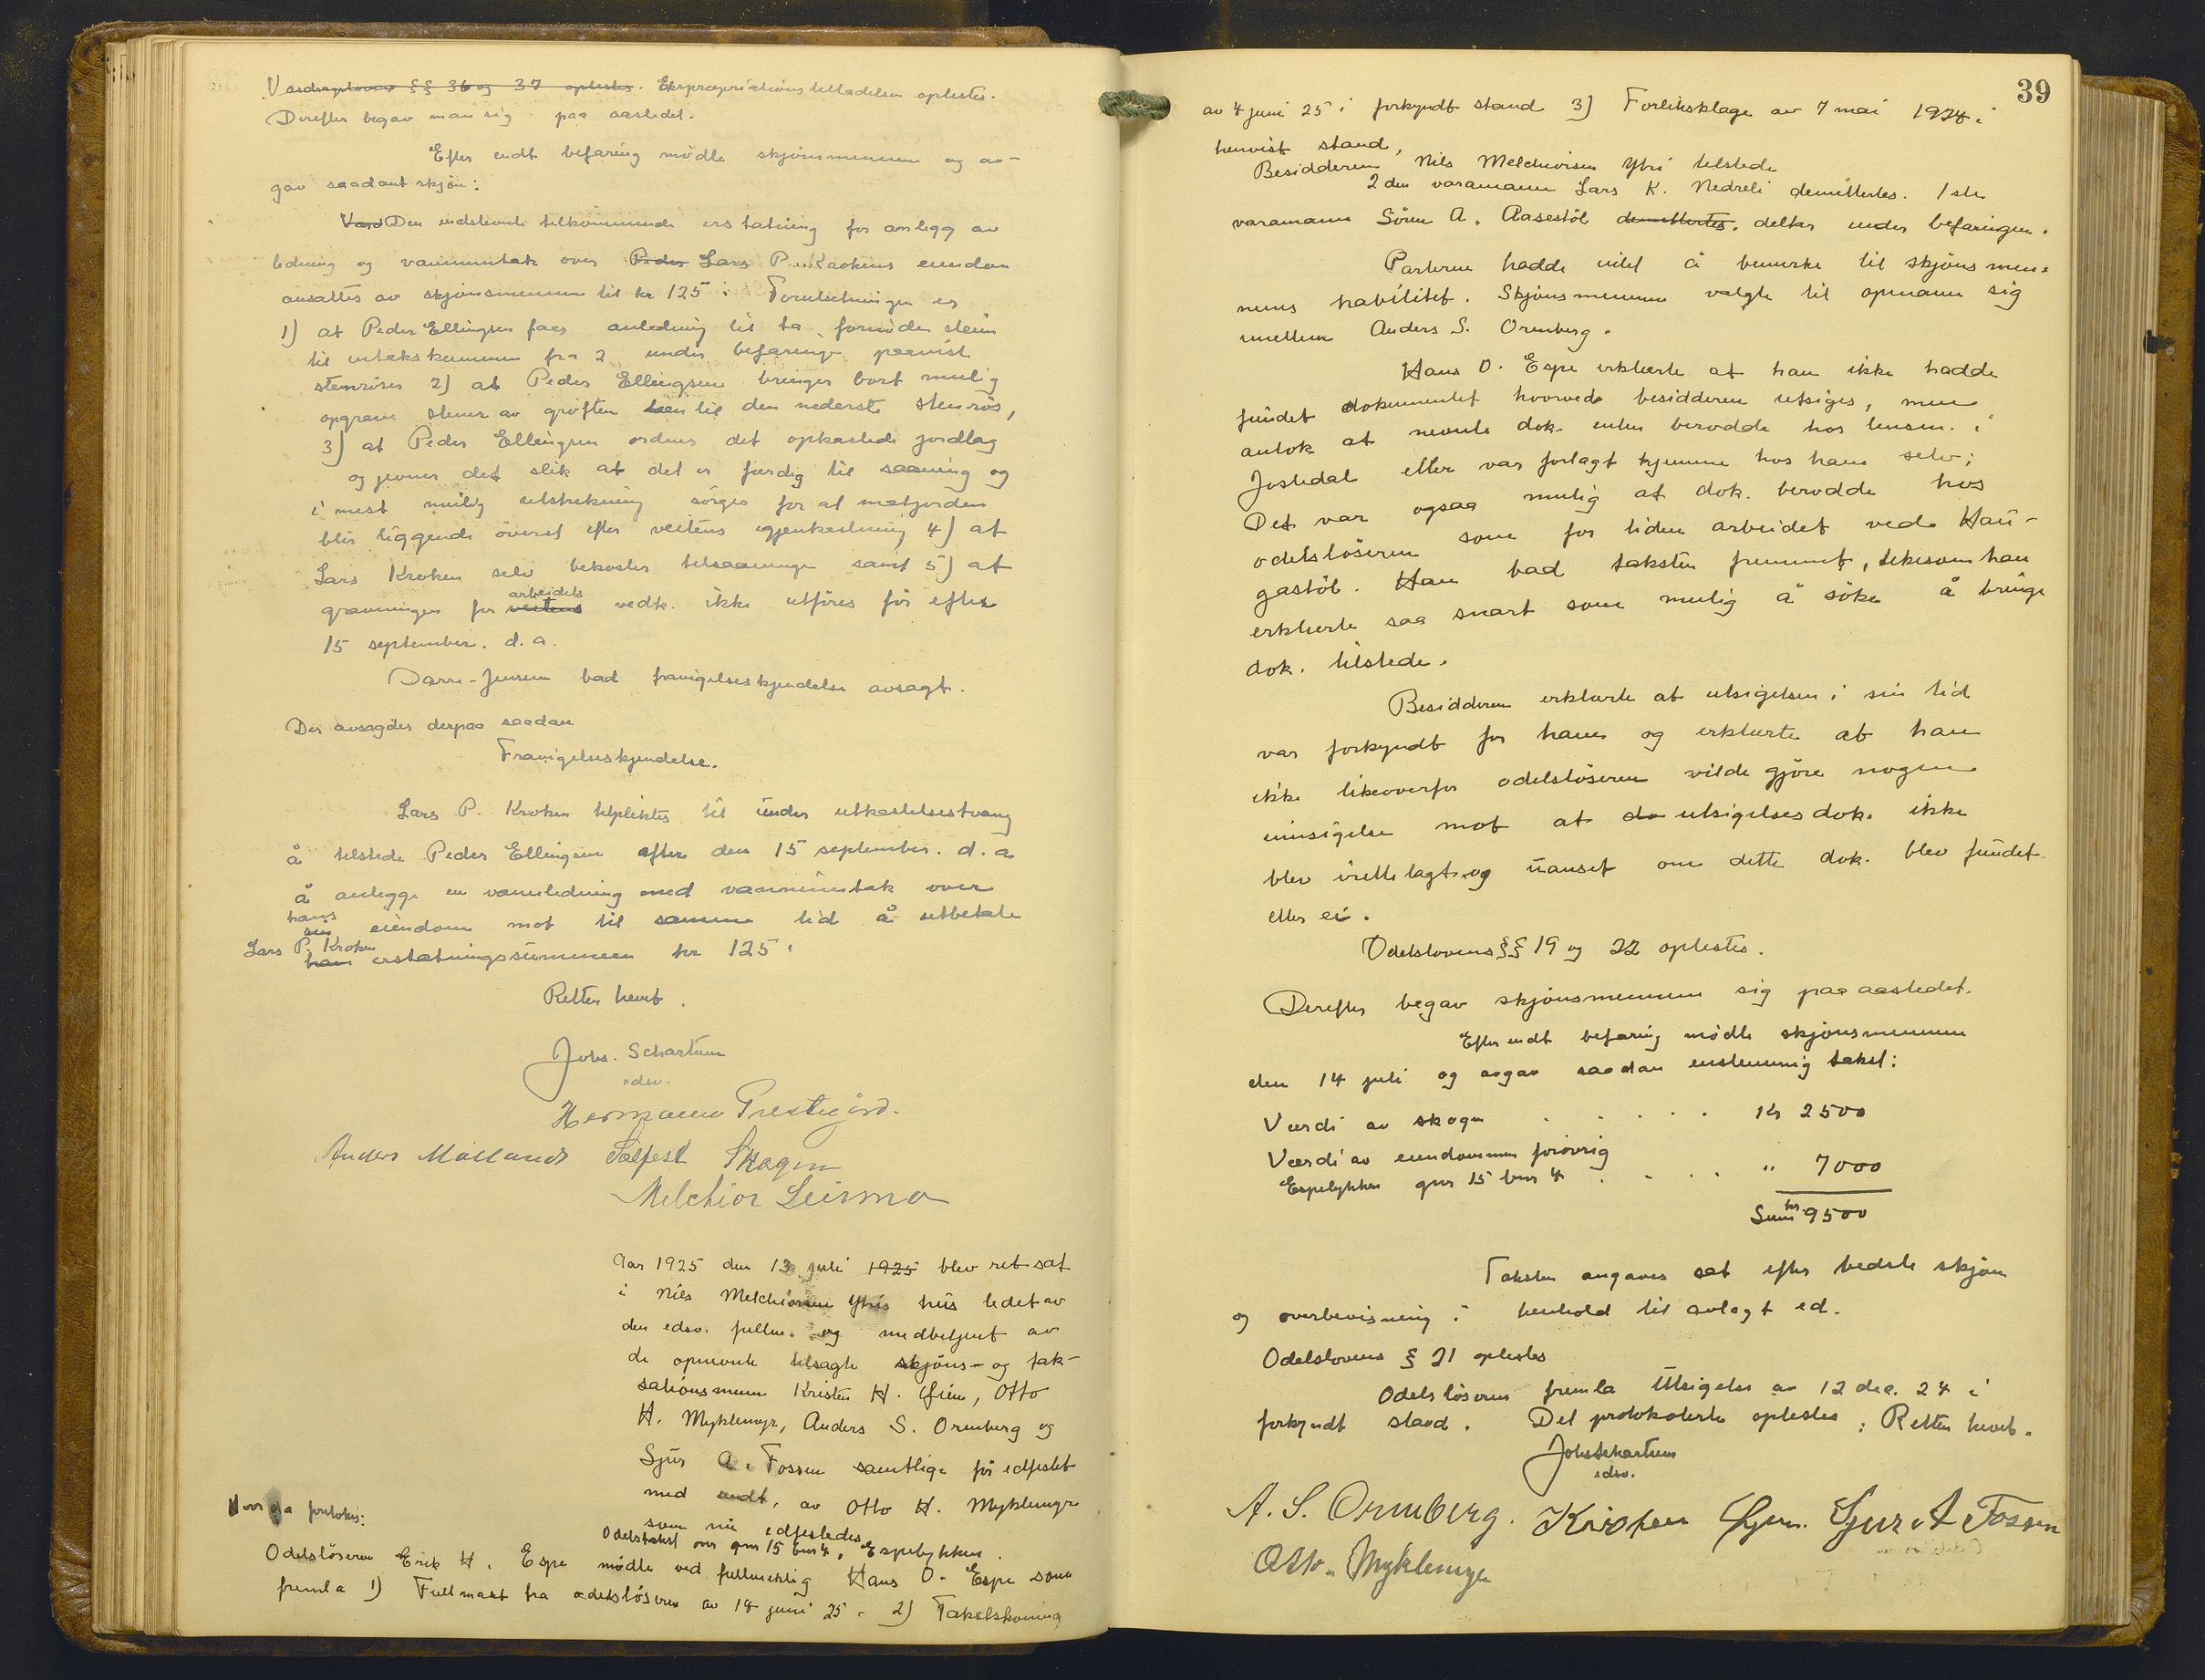 Vasdragsloven §§ 36 og 37 oplestes. Ekspropriationstilladelsen oplestes.
Derefter begav man sig paa aastedet.
Efter endt befaring mødte skjønsmennene og av-
gav saadant skjøn:
Den tilkommende erstatning for anlegg av
ledning og vanninntak over Peder Lars P. Krokens eiendom
ansattes av skjønsmennene til kr 125. Forutsetningen er
1) at Peder Ellingsen faar anledning til å ta fornøden stein
til inntakskummen fra 2 under befaringen paavist
stenrøser 2) at Peder Ellingsen bringer bort mulig
opgravne stener av grøften til den nederste stenrøs,
3) at Peder Ellingsen ordner det opkastede jordlag
og jevner det slik at det er færdig til saaning og
i mest mulig utstrekning sørges for at matjorden
blir liggende øverst efter veitens igjenkastning 4) at
Lars Kroken selv bekoster tilsaaningen samt 5) at
arbeidets
gravningen for veitens vedk. ikke utføres før efter
15 september. d. a.
Darre-Jensen bad fravigelseskjendelse avsagt.
Der avsagdes derpaa saadan
Fravigelseskjendelse.
Lars P. Kroken tilpliktes til under utkastelsestvang
å tilstede Peder Ellingsen efter den 15 september. d. a
å anlegge en vannledning med vanninntak over
hans
sin eiendom mot til samme tid å utbetale
Lars P. Kroken
ham erstatningssummen kr 125.
Retten hevet.
Johs. Schartum
edsv.
Hermann Prestegård.
Anders Mølland Sølfest Skagen
Melchior Leirmo
Aar 1925 den 13 juli 1925 blev ret sat
i Nils Melchiorsen Ytris hus ledet av
den edsv. fullm. og medbetjent av
de opnevnte tilsagte skjøns- og tak-
sationsmenn Kristen H. Gjen, Otto
H. Myklemyr, Anders S. Ormberg og
Sjur A. Fossen samtlige før edfestet
med undt. av Otto H. Myklemyr
som nu edfestedes
Hvor da foretokes:
Odelstakst over gnr 15 bnr 4, Espelykken.
Odelsløseren Erik H. Espe mødte ved fullmektig Hans O. Espe som
fremla 1) Fullmakt fra odelsløseren av 18 juni 25. 2) Takstskrivning
39
av 4 juni 25 i forkyndt stand 3) Forliksklage av 7 mai 1924 i
henvist stand,
Besidderen Nils Melchiorsen Ytri tilstede
2den varamann Lars K. Nedreli demitteres. 1ste
varamann Søren A. Aasestøl demittertes. deltar under befaringen.
Parterne hadde intet å bemerke til skjønsmen-
nenes habilitet. Skjønsmennene valgte til opmann sig
imellem Anders S. Ormberg.
Hans O. Espe erklærte at han ikke hadde
fundet dokumentet hvorved besidderen utsiges, men
antok at nevnte dok. enten berodde hos lensm. i
Jostedal eller var forlagt hjemme hos ham selv;
Det var ogsaa mulig at dok. berodde hos
odelsløseren som for tiden arbeidet ved Hau-
gastøl. Han bad taksten fremmet, likesom han
erklærte saa snart som mulig å søke å bringe
dok. tilstede.
Besidderen erklærte at utsigelsen i sin tid
var forkyndt for ham og erklærte at han
ikke likeoverfor odelsløseren vilde gjøre nogen
innsigelse mot at da utsigelsesdok. ikke
blev irettelagt og uanset om dette dok. blev fundet
eller ei.
Odelslovens §§ 19 og 22 oplestes.
Derefter begav skjønsmennene sig paa aastedet.
Efter endt befaring mødte skjønsmennene
den 14 juli og avgav saadan enstemmig takst:
Værdi av skogen . . . . . Kr 2500
Værdi av eiendommen forøvrig
Espelykken gnr 15 bnr 4 . . . . " 7000
Sum kr 9500
Taksten angaves sat efter bedste skjøn
og overbevisning i henhold til avlagt ed.
Odelslovens § 21 oplestes
Odelsløseren fremla Utsigelse av 12 dec. 24 i
forkyndt stand. Det protokollerte oplestes; Retten hevet.
Johs Schartum
edsv.
A. S. Ormberg. Kristen Gjen. Sjur A Fossen
Otto. Myklemyr